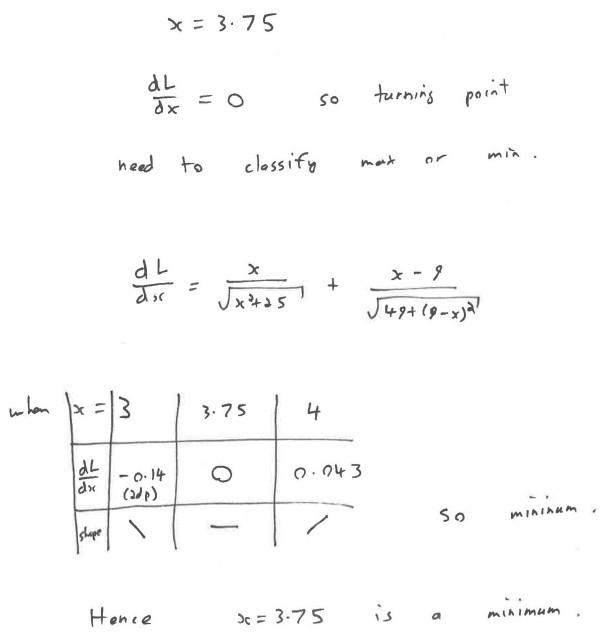 x = 3.75
dL/dx = 0 so turning point
need to classify max or min.
dL/dx = x/√(x²+25) + (x - 9)/√(49+(9-x)²)
when x = 3 3.75 4
dL/dx -0.14 (2dp) 0 0.043
shape \ — /
so minimum.
Hence x = 3.75 is a minimum.